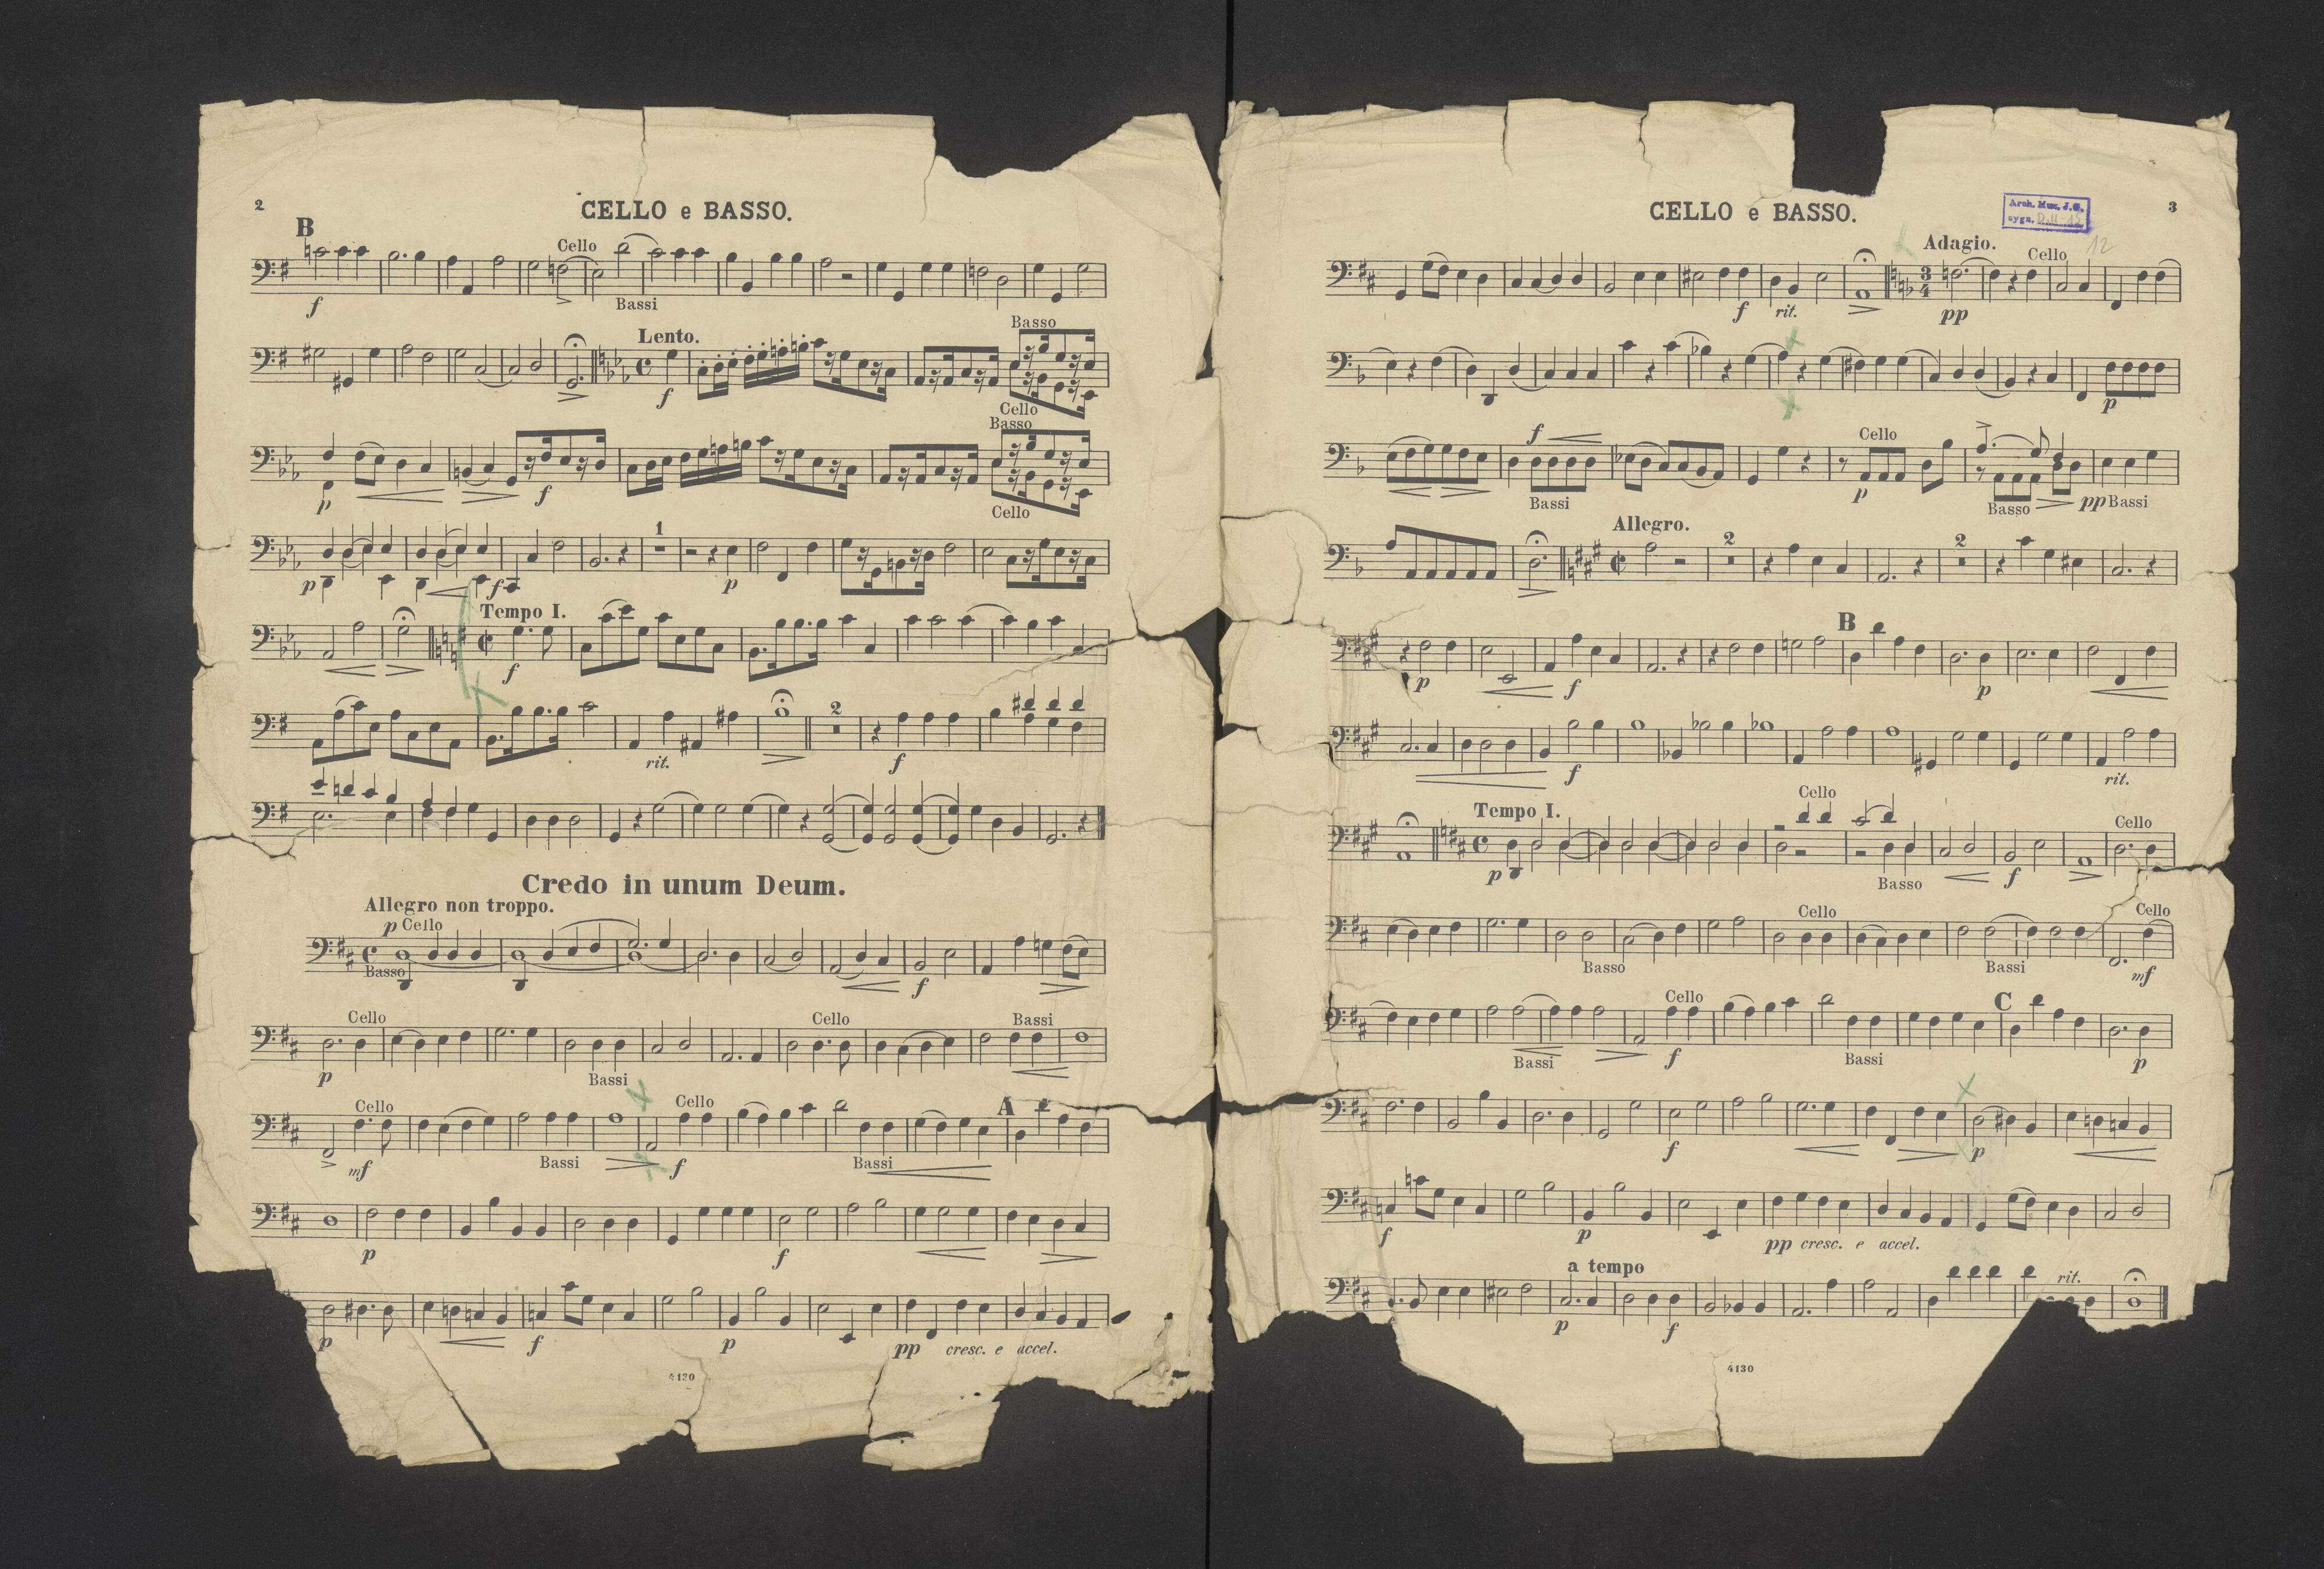 2
CELLO e BASSO.
B
Cello
f
Bassi
Lento.
Basso
f
Cello
Basso
p
f
Cello
1
p
f
p
Tempo I.
f
2
rit.
f
Credo in unum Deum.
Allegro non troppo.
p Cello
Basso
f
Cello
Cello
Bassi
p
Bassi
Cello
Cello
A
mf
Bassi
f
Bassi
p
f
p
f
p
pp cresc. e accel.
4130
CELLO e BASSO.
3
Arch. Muz. J. G.
sygn.
12
Adagio.
Cello
f
rit.
pp
p
f
Cello
Bassi
p
Basso
pp Bassi
Allegro.
2
2
B
p
f
p
f
rit.
Tempo I.
Cello
Cello
p
Basso
f
Cello
Cello
Basso
Bassi
mf
Cello
C
Bassi
f
Bassi
p
f
p
f
p
pp cresc. e accel.
a tempo
rit.
p
f
4130